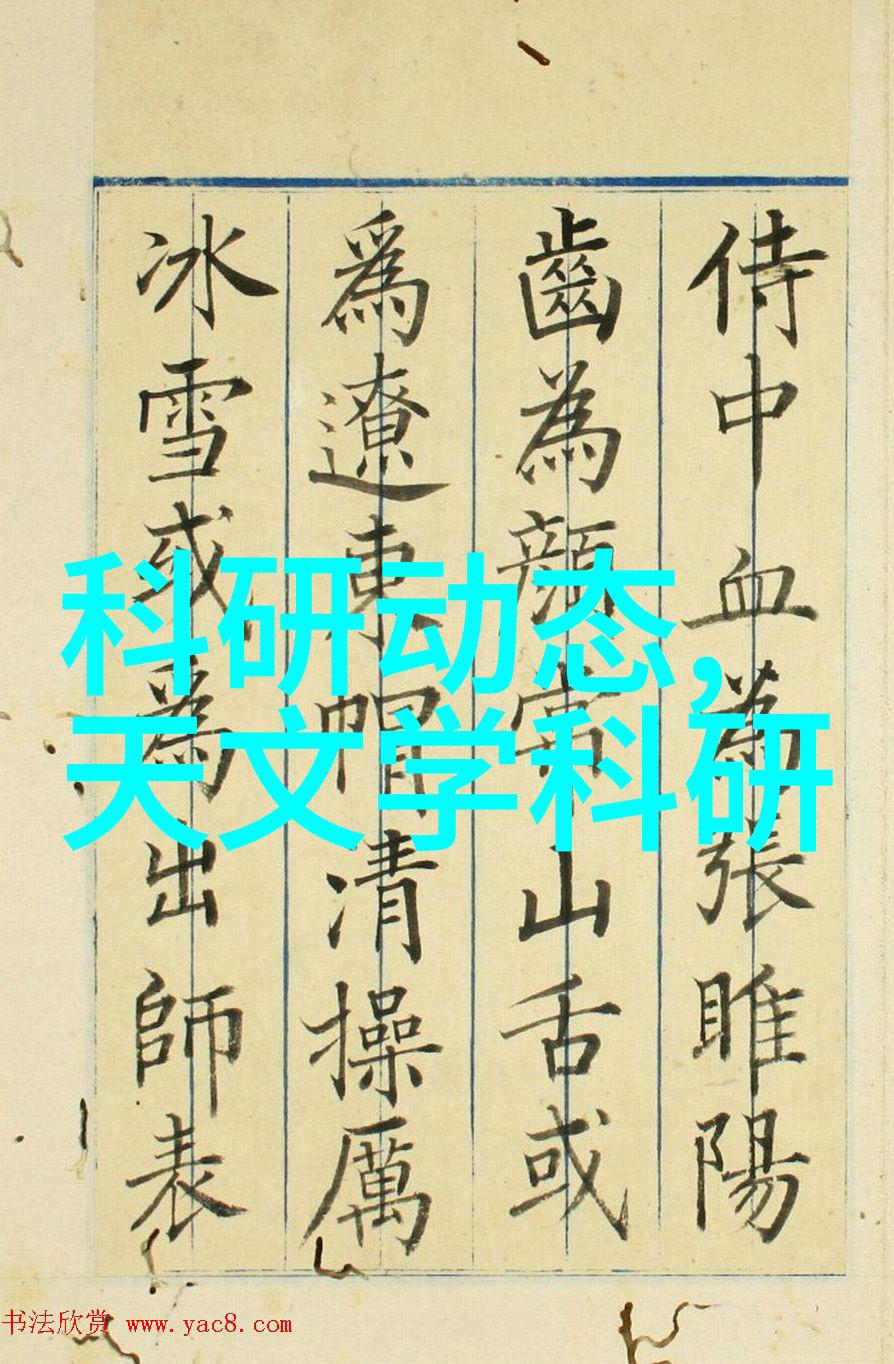 侍中血為張睢陽
齒為顏常山舌或
爲遼東帽清操厲
冰雪或為出師表
科研动态,
天文学科研
书法欣赏 www.yac8.com